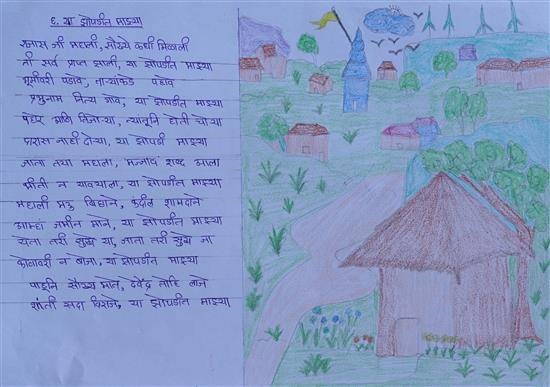 ६. या झोपडीत माझ्या
राजास जी महाली, सौख्ये कधी मिळाली
ती सर्व प्राप्त झाली, या झोपडीत माझ्या
भूमीवरी पडावे, ताऱ्यांकडे पहावे
प्रभुनाम नित्य गावे, या झोपडीत माझ्या
पहारे आणि तिजोऱ्या, त्यातूनि होती चोऱ्या
दारास नाही दोऱ्या, या झोपडी माझ्या
जाता तया महाला, मज्जाव शब्द आला
भीती न यावयाला, या झोपडीत माझ्या
महाली मऊ बिछाने, कंदील शामदाने
आम्हां जमीन माने, या झोपडीत माझ्या
येता तरी सुखे या, जाता तरी सुखे जा
कोणावरी न बोजा, या झोपडीत माझ्या
पाहूनि सौख्य माते, देवेंद्र तोहि लाजे
शांती सदा विराजे, या झोपडीत माझ्या